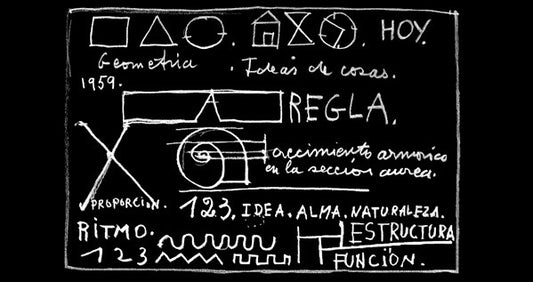 HOY.
Geometria . Ideas de cosas.
1959.
REGLA.
crecimiento armonico
en la sección aurea.
PROPORCION. 123. IDEA. ALMA. NATURALEZA.
RITMO. ESTRUCTURA
1 2 3 FUNCIÓN.